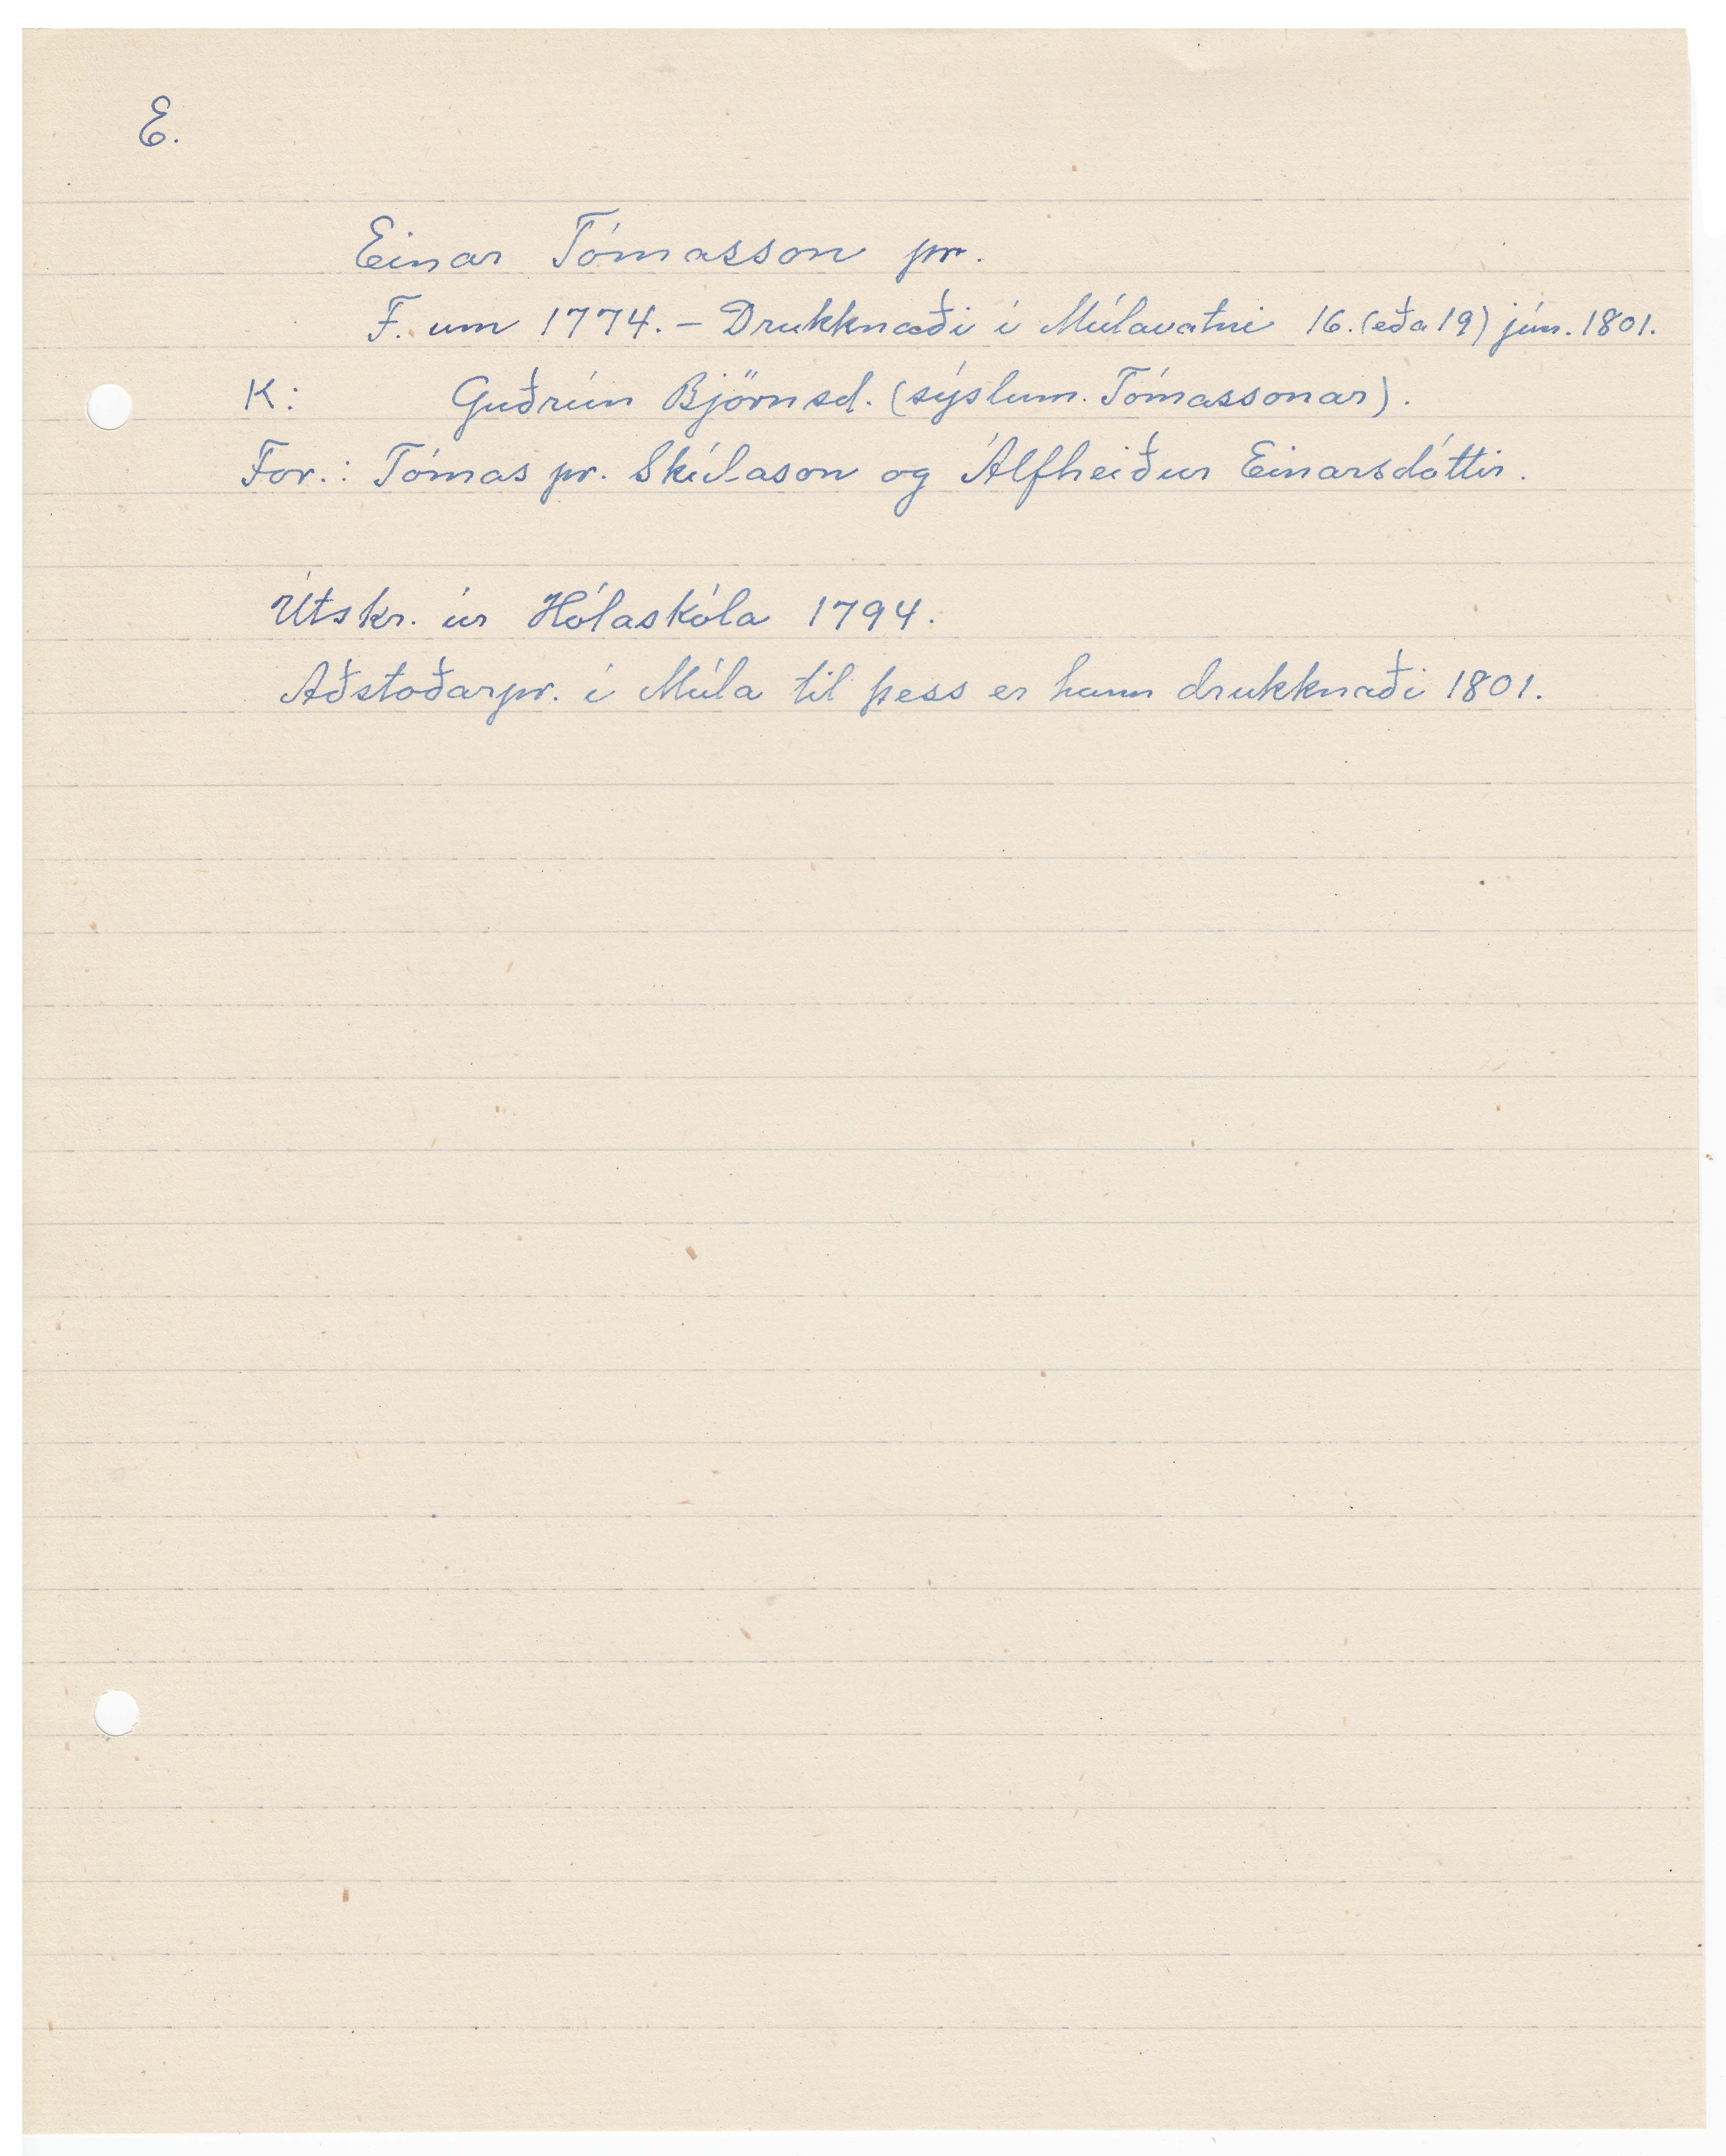 E.
Einar Tómasson pr.
F. um 1774. - Drukknaði í Múlavatni 16. (eða 19) jún. 1801.
K: Guðrún Björnsd. (sýslum. Tómassonar).
For.: Tómas pr. Skúlason og Álfheiður Einarsdóttir.
Útskr. úr Hólaskóla 1794.
Aðstoðarpr. í Múla til þess er hann drukknaði 1801.